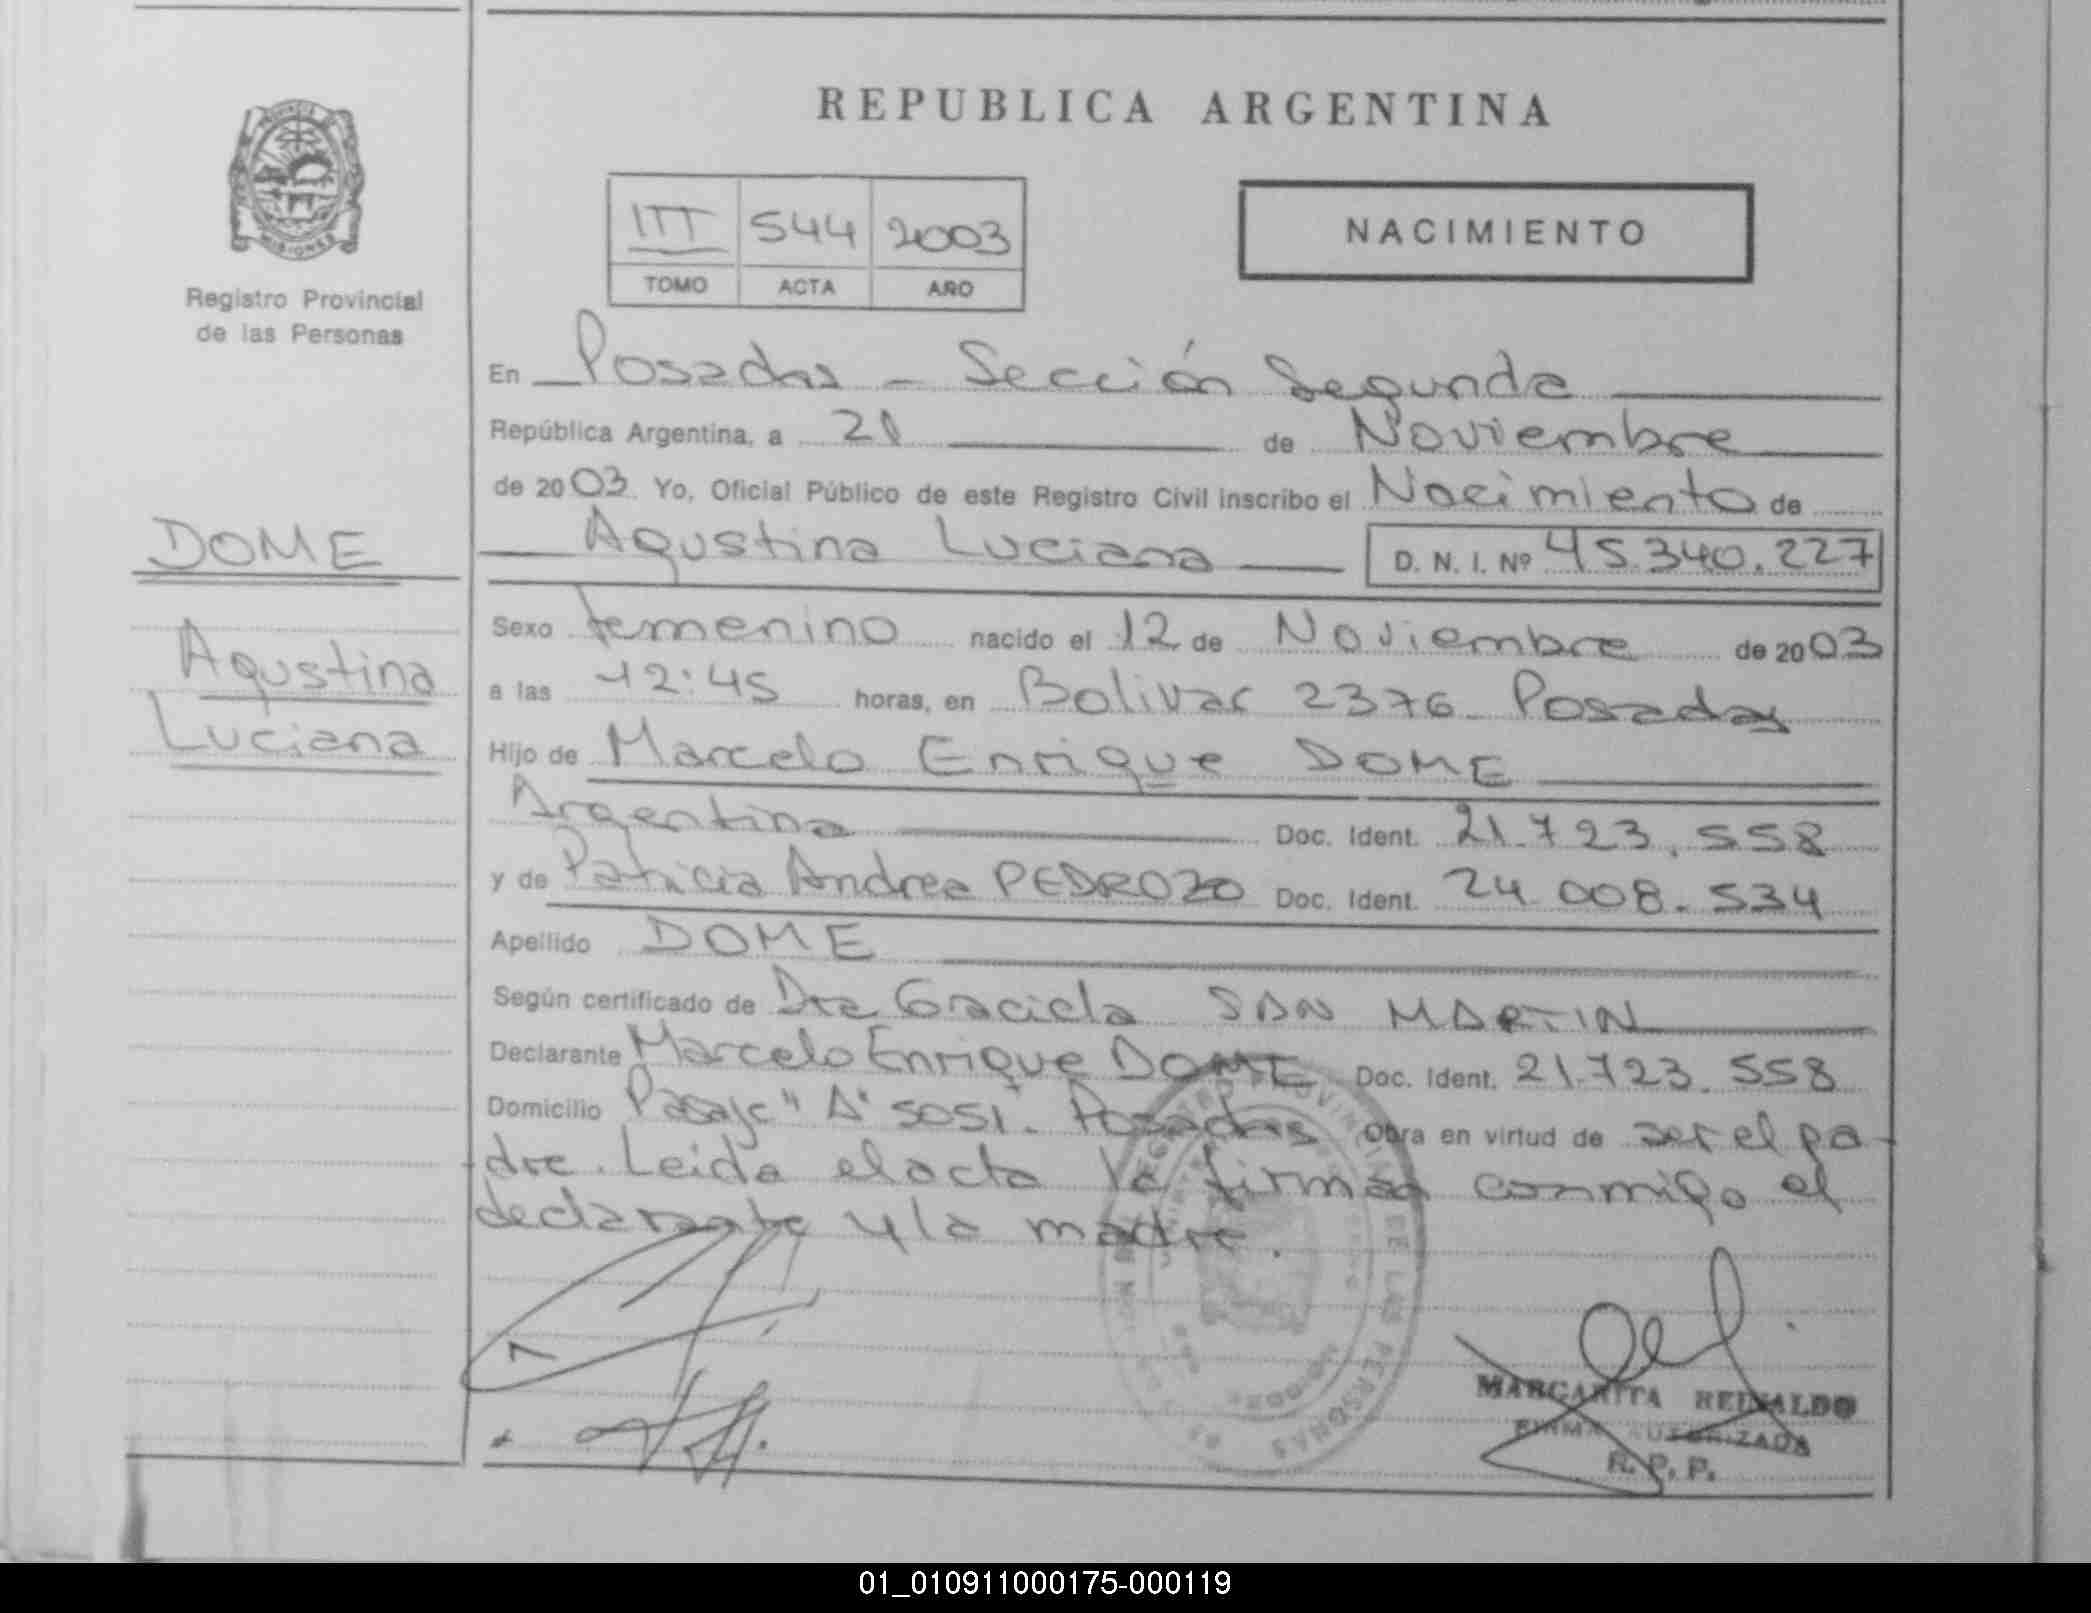 REPUBLICA ARGENTINA
PROVINCIA DE MISIONES
Registro Provincial
de las Personas
III 544 2003
TOMO ACTA AÑO
NACIMIENTO
En Posadas - Sección Segunda
República Argentina, a 21 de Noviembre
de 2003 Yo, Oficial Público de este Registro Civil inscribo el Nacimiento de
Agustina Luciana D. N. I. Nº 45.340.227
DOME
Agustina
Luciana
Sexo femenino nacido el 12 de Noviembre de 2003
a las 12:45 horas, en Bolivar 2376 Posadas
Hijo de Marcelo Enrique DOME
Argentina Doc. Ident. 21.723.558
y de Patricia Andrea PEDROZO Doc. Ident. 24.008.534
Apellido DOME
Según certificado de Dra Graciela SAN MARTIN
Declarante Marcelo Enrique DOME Doc. Ident. 21.723.558
Domicilio Pasaje "A" 5051. Posadas Obra en virtud de ser el pa-
dre. Leida el acta la firman conmigo el
declarante y la madre.
REGISTRO PROVINCIAL DE LAS PERSONAS
MARGARITA REINALDO
FIRMA AUTORIZADA
R. P. P.
01_010911000175-000119